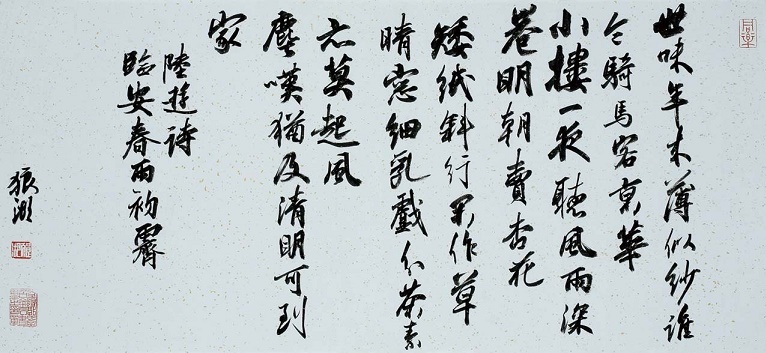 世味年来薄似紗誰
令騎馬客京華
小樓一夜聽風雨深
巷明朝賣杏花
矮紙斜行閑作草
晴窓細乳戲分茶素
衣莫起風
塵嘆猶及清明可到
家
陸遊詩
臨安春雨初霽